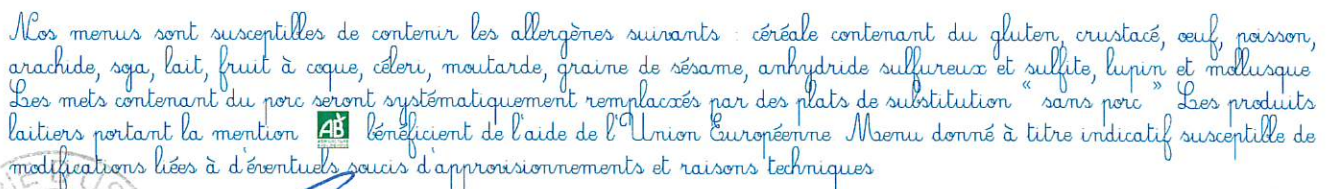 Nos menus sont susceptilles de contenir les allergènes suivants : céréale contenant du gluten, crustacé, oeuf, poisson,
arachide, soja, lait, fruit à coque, céleri, moutarde, graine de sésame, anhydride sulfureux et sulfite, lupin et mollusque
Les mets contenant du porc seront systématiquement remplacxés par des plats de substitution " sans porc " Les produits
laitiers portant la mention AB bénéficient de l'aide de l'Union Européenne Menu donné à titre indicatif susceptille de
modifications liées à d'éventuels soucis d'approvisionnements et raisons techniques